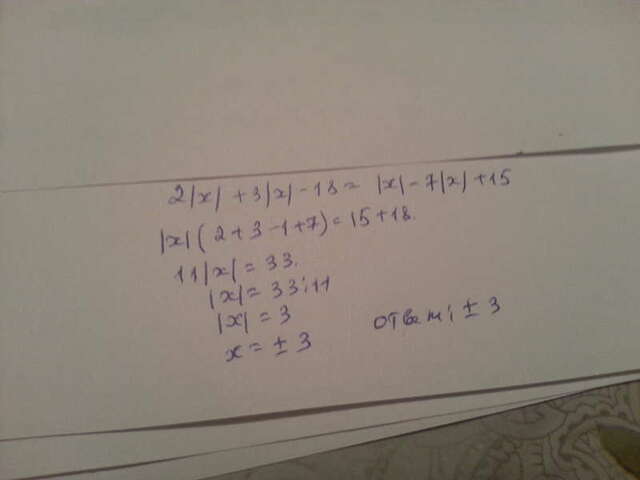 2|x| + 3|x| - 18 = |x| - 7|x| + 15
|x|(2 + 3 - 1 + 7) = 15 + 18.
11|x| = 33.
|x| = 33 : 11
|x| = 3
x = ± 3
ответ: ± 3